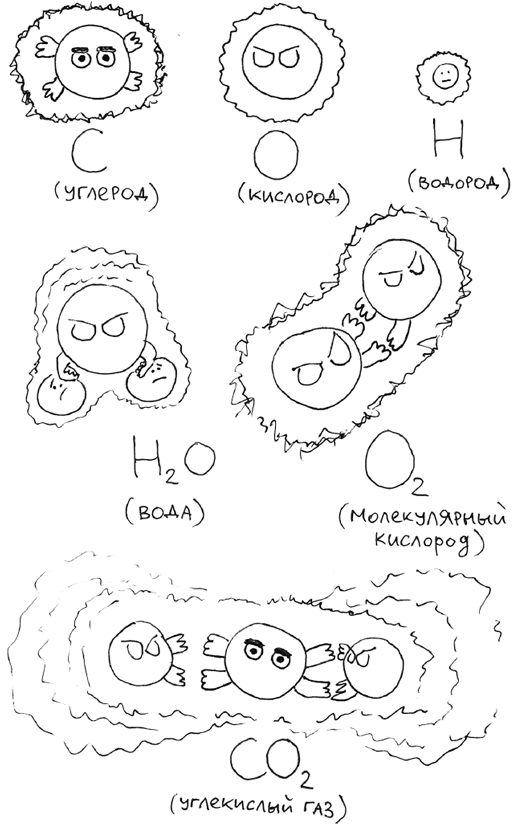 C
(углерод)
O
(кислород)
H
(водород)
H₂O
(вода)
O₂
(молекулярный
кислород)
CO₂
(углекислый газ)